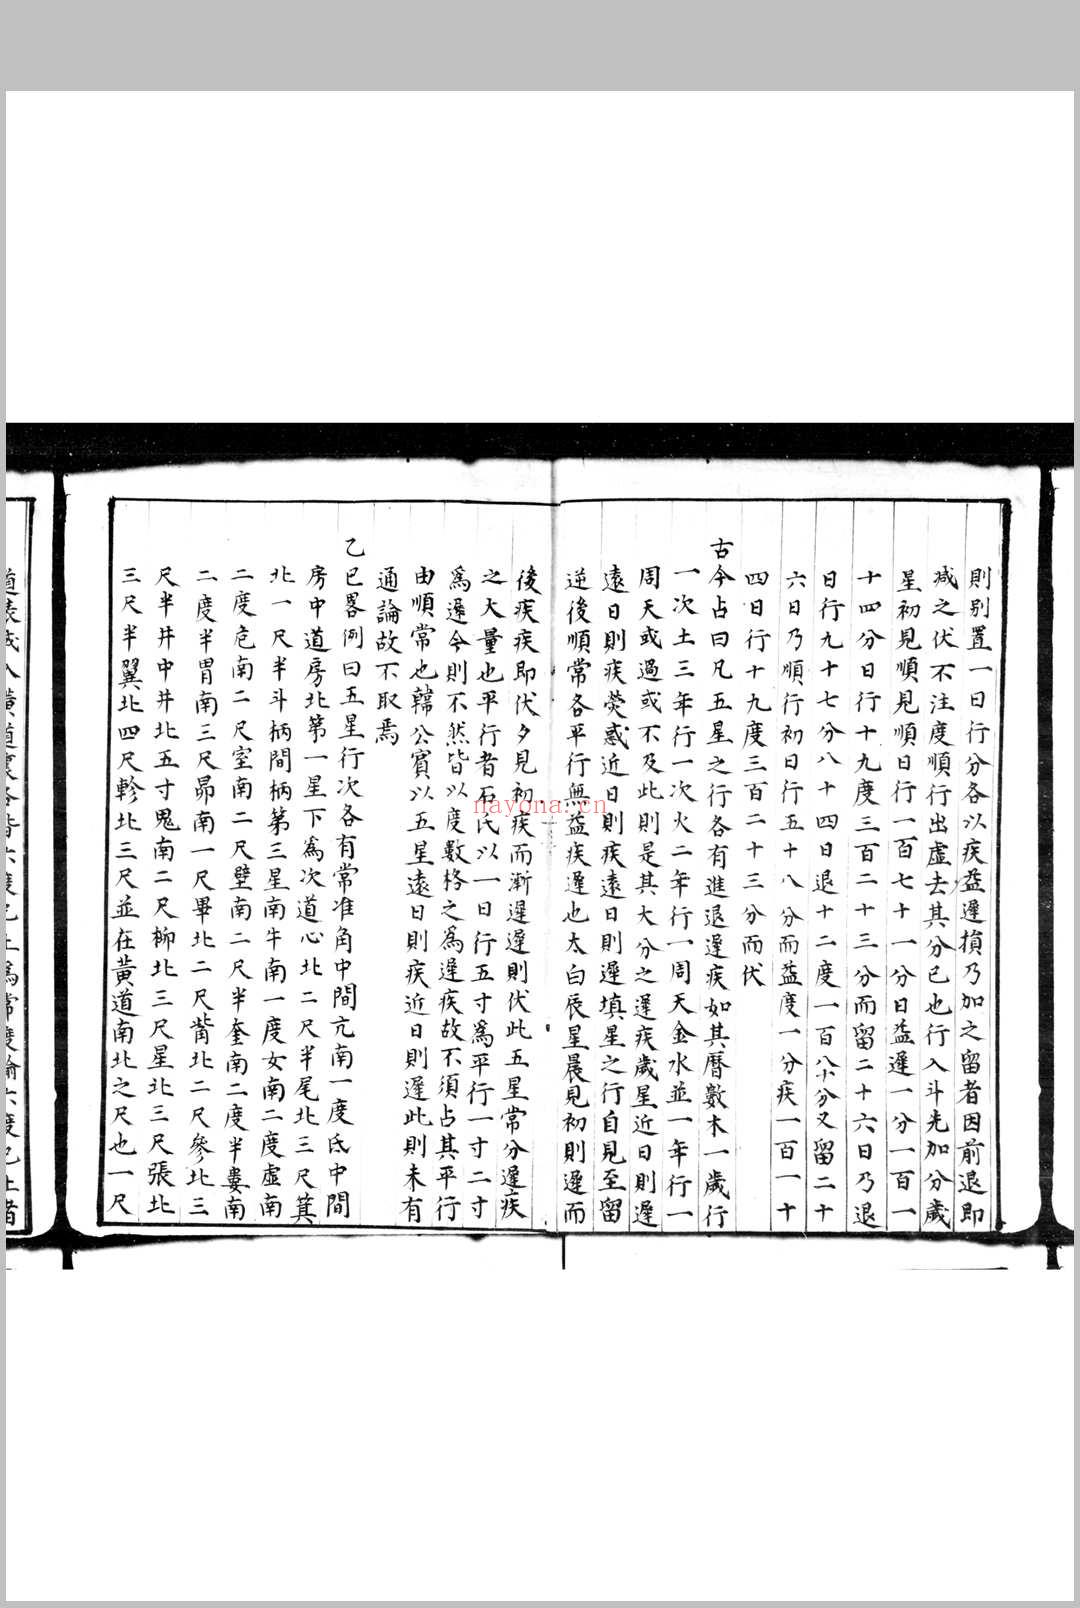 則别置一日行分各以疾益遲損乃加之留者因前退即
减之伏不注度順行出虛去其分已也行入斗先加分歲
星初見順見順日行一百七十一分日益遲一分一百一
十四分日行十九度三百二十三分而留二十六日乃退
日行九十七分八十四日退十二度一百八十分又留二十
六日乃順行初日行五十八分而益度一分疾一百一十
四日行十九度三百二十三分而伏
古今占曰凡五星之行各有進退遲疾如其曆數木一歲行
一次土三年行一次火二年行一周天金水並一年行一
周天或過或不及此則是其大分之遲疾歲星近日則遲
遠日則疾熒惑近日則疾遠日則遲填星之行自見至留
逆後順常各平行無益疾遲也太白辰星晨見初則遲而
後疾疾即伏夕見初疾而漸遲遲則伏此五星常分遲疾
之大量也平行者石氏以一日行五寸為平行一寸二寸
為遲今則不然皆以度數格之為遲疾故不須占其平行
由順常也韓公賓以五星遠日則疾近日則遲此則未有
通論故不取焉
乙巳畧例曰五星行次各有常准角中間亢南一度氐中間
房中道房北第一星下為次道心北二尺半尾北三尺箕
北一尺半斗柄間柄第三星南牛南一度女南二度虛南
二度危南二尺室南二尺壁南二尺半奎南二度半婁南
二度半胃南三尺昴南一尺畢北二尺觜北二尺參北三
尺半井中井北五寸鬼南二尺柳北三尺星北三尺張北
三尺半翼北四尺軫北三尺並在黄道南北之尺也一尺
nayona.cn